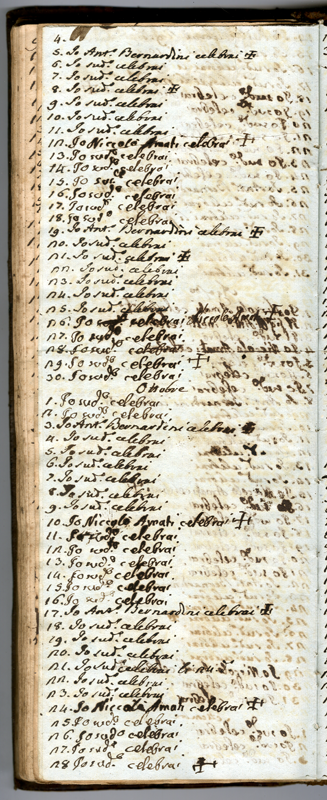 4.
5. Io Ant. Bernardini celebrai ✠
6. Io sud.º celebrai
7. Io sud.º celebrai
8. Io sud.º celebrai ✠
9. Io sud.º celebrai
10. Io sud.º celebrai
11. Io sud.º celebrai
12. Io Niccolò Amati celebrai ✠
13. Io sud.º celebrai
14. Io sud.º celebrai
15. Io sud.º celebrai
16. Io sud.º celebrai
17. Io sud.º celebrai
18. Io sud.º celebrai
19. Io Ant. Bernardini celebrai ✠
20. Io sud.º celebrai
21. Io sud.º celebrai ✠
22. Io sud.º celebrai
23. Io sud.º celebrai
24. Io sud.º celebrai
25. Io sud.º celebrai
26. Io celebrai Niccolò Amati ✠
27. Io sud.º celebrai
28. Io sud.º celebrai
29. Io sud.º celebrai ✠
30. Io sud.º celebrai
Ottobre
1. Io sud.º celebrai
2. Io sud.º celebrai
3. Io Ant. Bernardini celebrai ✠
4. Io sud.º celebrai
5. Io sud.º celebrai
6. Io sud.º celebrai
7. Io sud.º celebrai
8. Io sud.º celebrai
9. Io sud.º celebrai
10. Io Niccolò Amati celebrai ✠
11. Io sud.º celebrai
12. Io sud.º celebrai
13. Io sud.º celebrai
14. Io sud.º celebrai
15. Io sud.º celebrai
16. Io sud.º celebrai
17. Io Ant. Bernardini celebrai ✠
18. Io sud.º celebrai
19. Io sud.º celebrai
20. Io sud.º celebrai
21. Io sud.º celebrai
22. Io sud.º celebrai
23. Io sud.º celebrai
24. Io Niccolò Amati celebrai ✠
25. Io sud.º celebrai
26. Io sud.º celebrai
27. Io sud.º celebrai
28 Io sud.º celebrai ✠